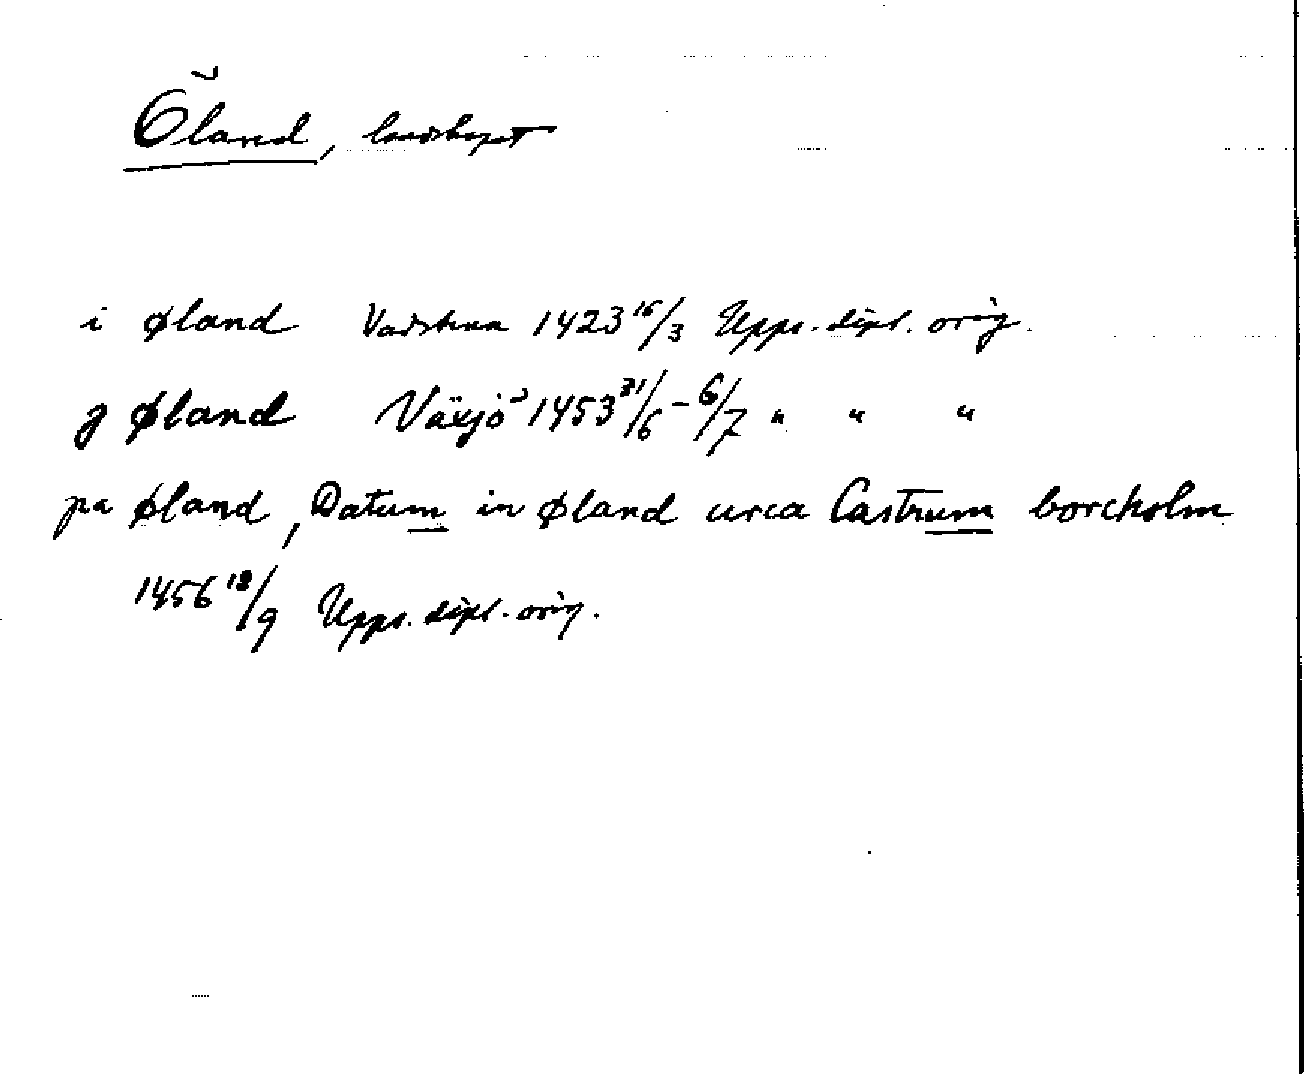 Öland, landskapet
i øland Vadstena 1423 16/3 Upps. dipl. orig.
j øland Växjö 1453 21/6 - 6/7 " " "
pa øland, Datum in øland circa Castrum borcholm
1456 18/9 Upps. dipl. orig.